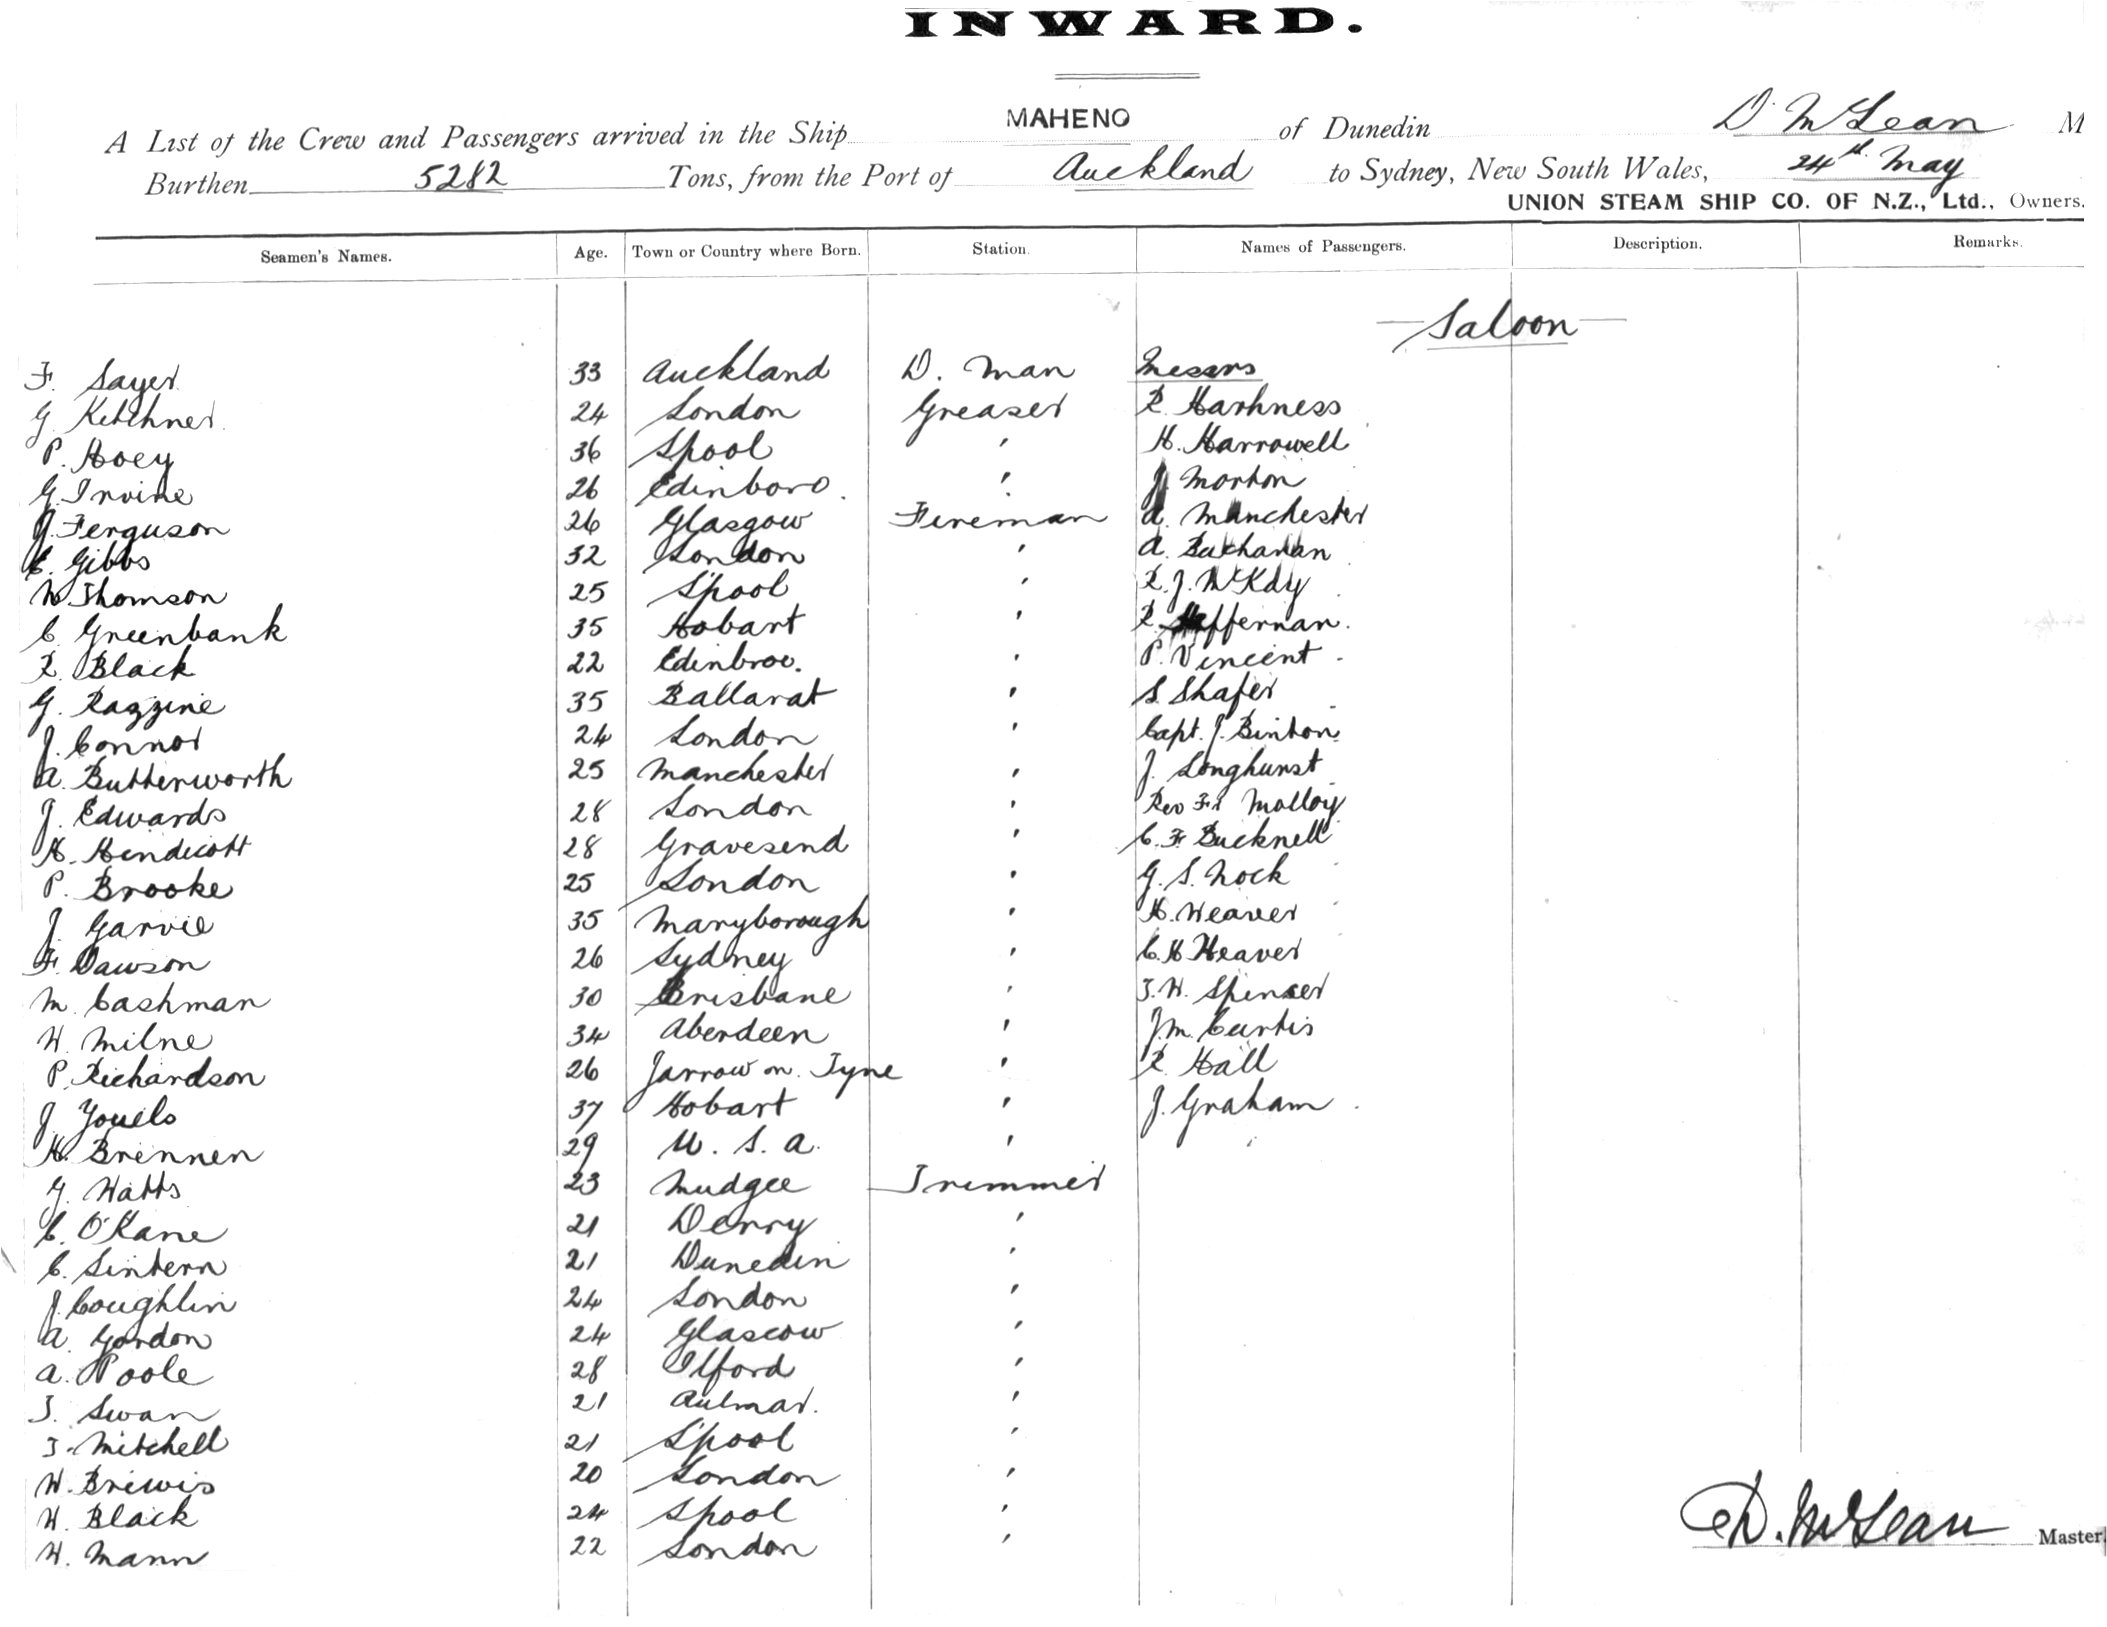 INWARD.
A List of the Crew and Passengers arrived in the Ship MAHENO of Dunedin D. McLean M
Burthen 5282 Tons, from the Port of Auckland to Sydney, New South Wales, 24th May
UNION STEAM SHIP CO. OF N.Z., Ltd., Owners.
Seamen's Names. Age. Town or Country where Born. Station. Names of Passengers. Description. Remarks.
Saloon
F. Sayer 33 Auckland D. Man Messrs
G. Kitchner 24 London Greaser R. Harkness
P. Hoey 36 S'pool ' H. Harrowell
G. Irvine 26 Edinboro. ' J. Morton
J. Ferguson 26 Glasgow Fireman A. Manchester
C. Gibbs 32 London ' A. Buchanan
W. Thomson 25 S'pool ' R. J. McKay
C. Greenbank 35 Hobart ' R. Heffernan.
R. Black 22 Edinbroo. ' P. Vincent
G. Razzine 35 Ballarat ' S. Shafer
J. Connor 24 London ' Capt. J. Binton
A. Butterworth 25 Manchester ' J. Longhurst
J. Edwards 28 London ' Rev Fr Molloy
H. Hendicott 28 Gravesend ' C. F. Bucknell
P. Brooke 25 London ' G. S. Nock
J. Garvie 35 Maryborough ' H. Weaver
F. Dawson 26 Sydney ' C. H Heaver
M. Cashman 30 Brisbane ' T. W. Spencer
W. Milne 34 Aberdeen ' J. M. Curtis
P. Richardson 26 Jarrow on Tyne ' R Hall
J. Youels 37 Hobart ' J. Graham
H. Brennen 29 U. S. A. '
G. Watts 23 Mudgee Trimmer
C. O'Kane 21 Derry '
C. Sintern 21 Dunedin '
J. Coughlin 24 London '
A. Gordon 24 Glascow '
A. Poole 28 Ilford '
T. Swan 21 '
T. Mitchell 21 S'pool '
W. Brewis 20 London '
W. Black 24 Spool '
W. Mann 22 London '
D. McLean Master